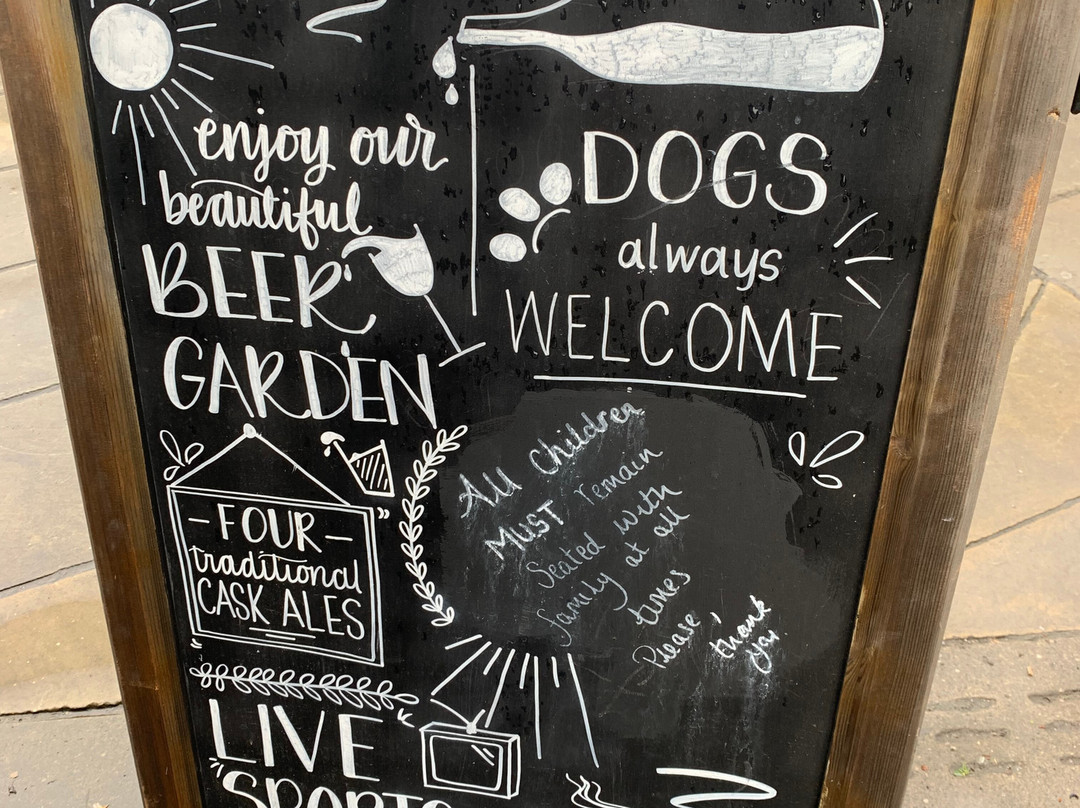 enjoy our
beautiful
BEER
GARDEN
- FOUR -
traditional
CASK ALES
LIVE
SPORTS
DOGS
always
WELCOME
All Children
MUST remain
Seated with
family at all
times
Please thank
you